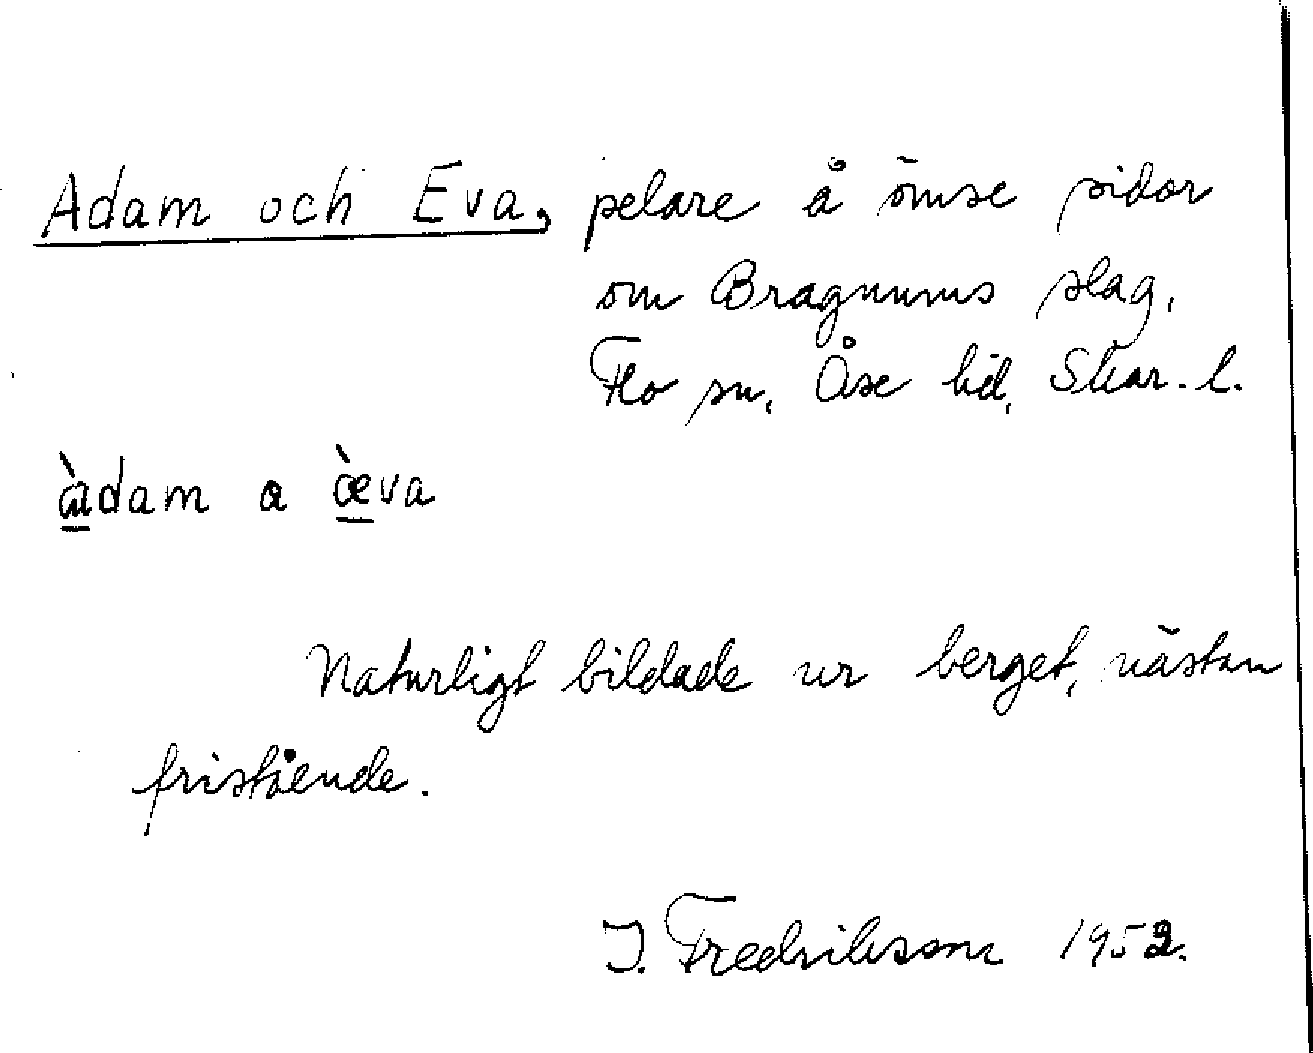 Adam och Eva, pelare å ömse sidor
om Bragnums slag,
Flo sn, Åse hd, Skar. l.
àdam a æ̀va
Naturligt bildade ur berget, nästan
fristående.
I. Fredriksson 1952.